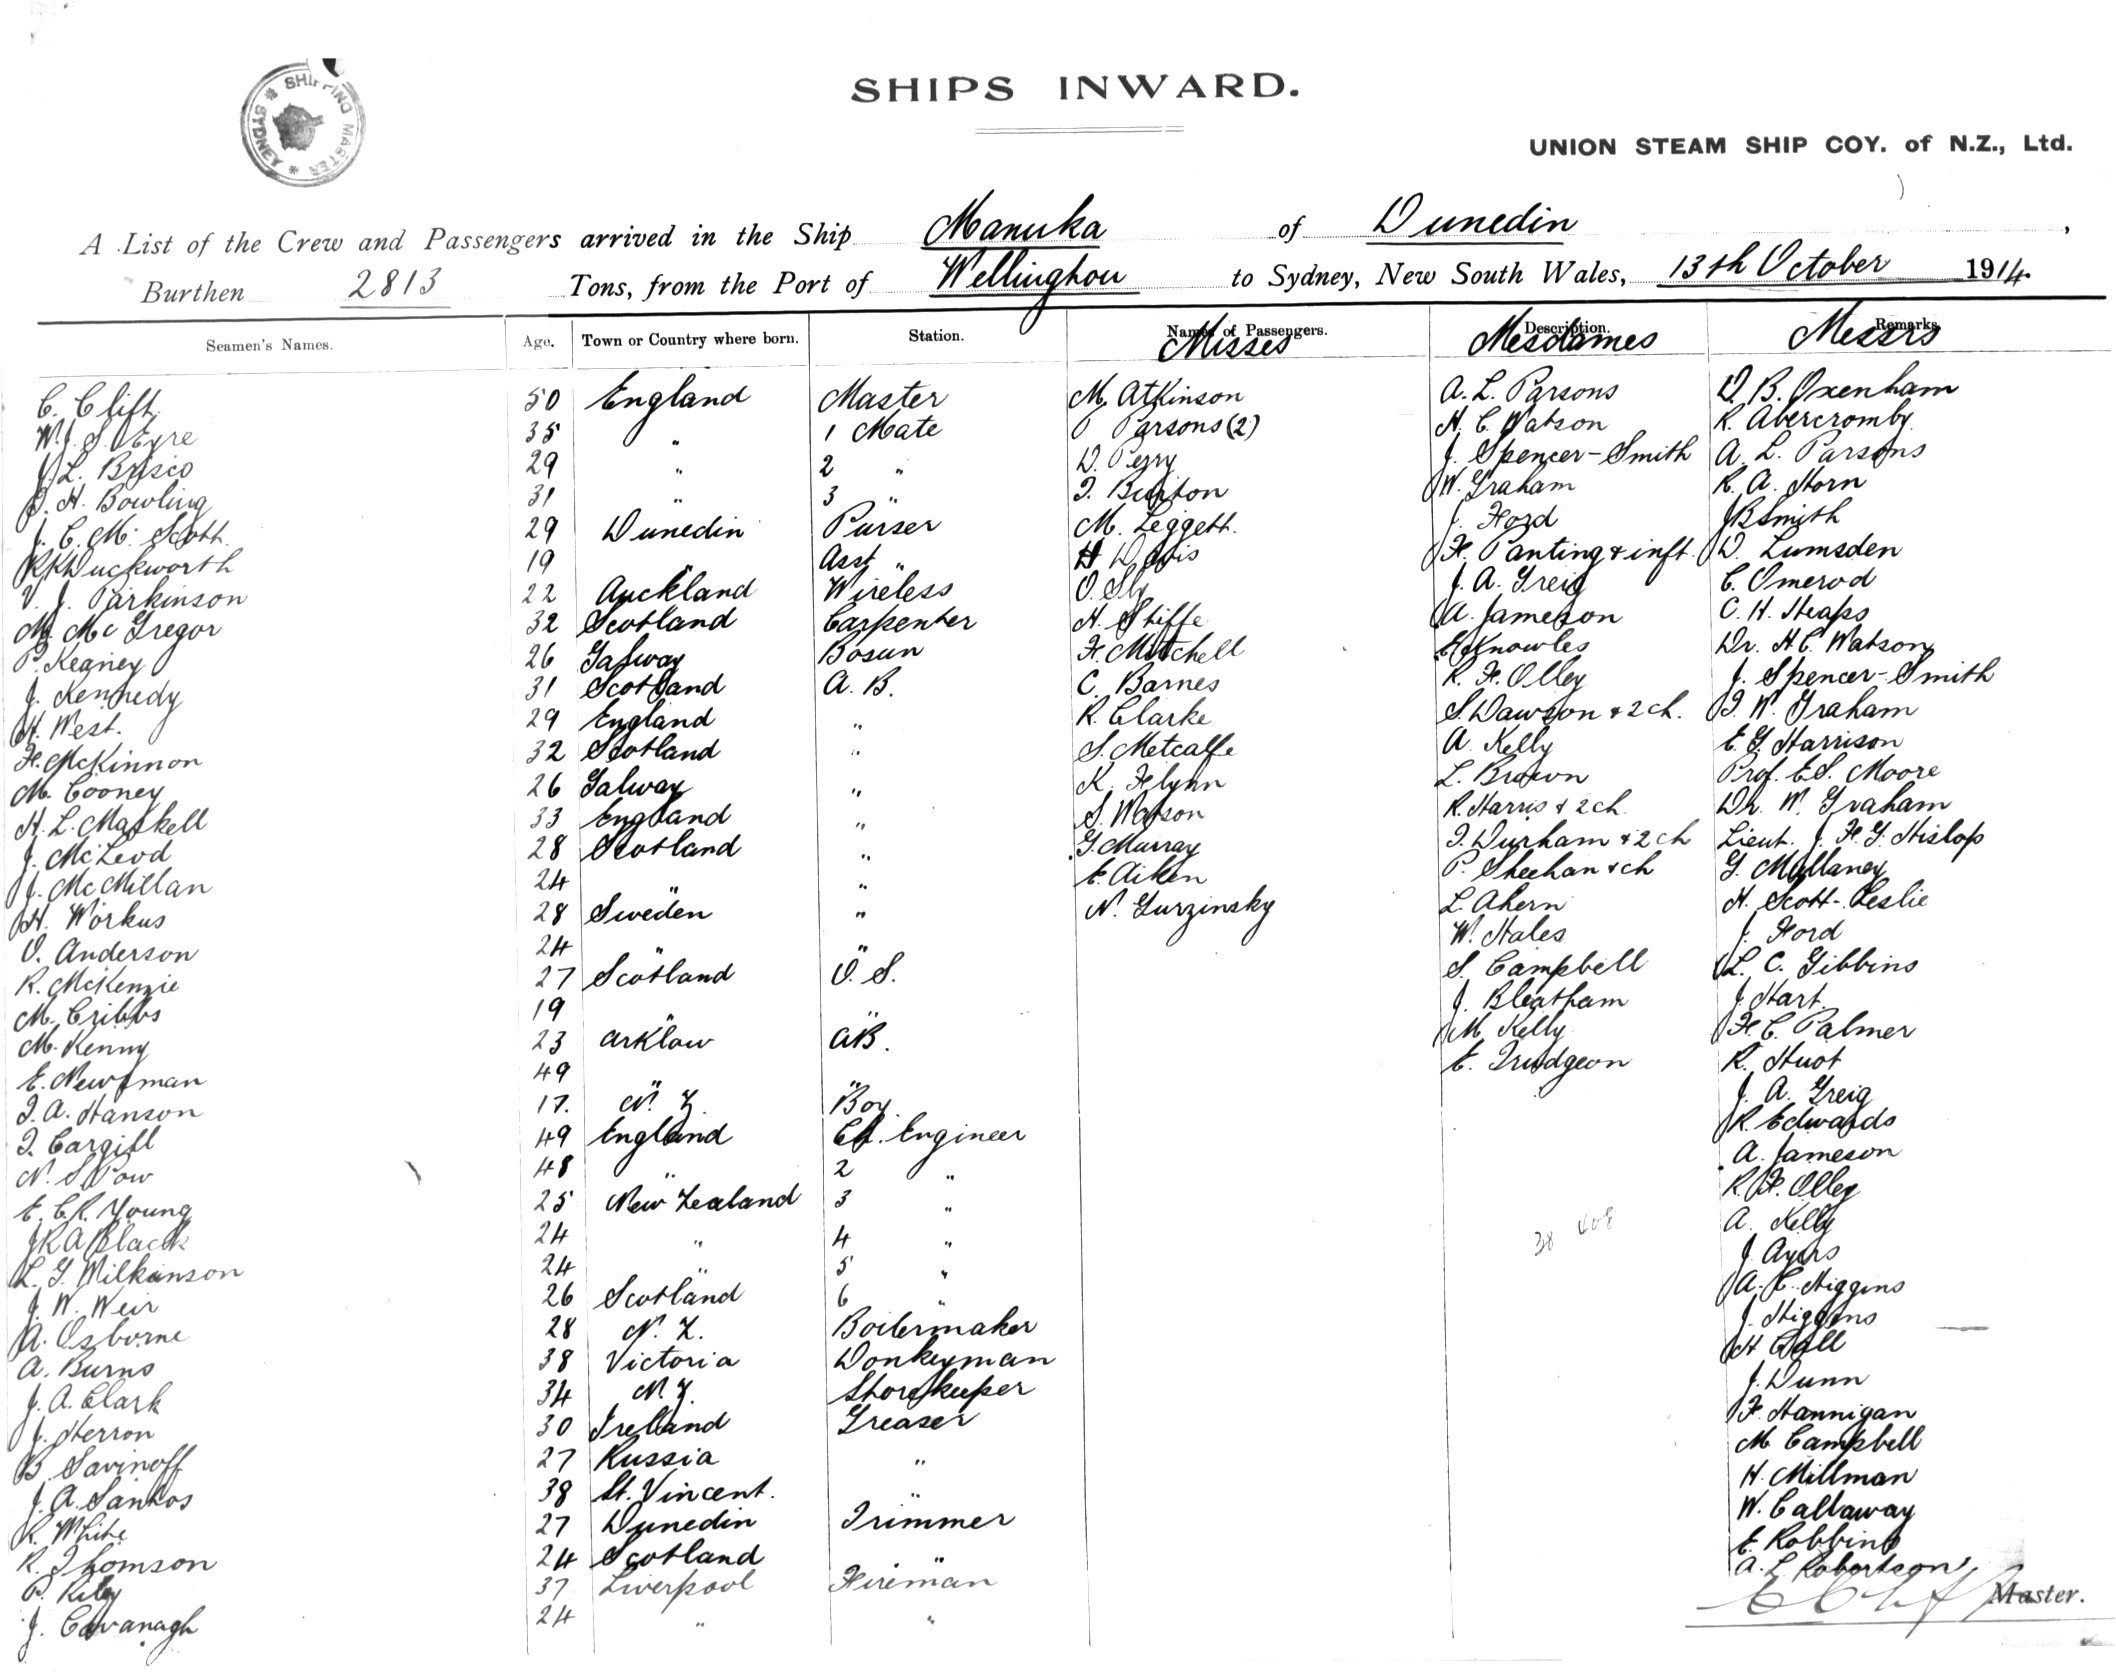 SHIPPING MASTER * SYDNEY *
SHIPS INWARD.
UNION STEAM SHIP COY. of N.Z., Ltd.
A List of the Crew and Passengers arrived in the Ship Manuka of Dunedin,
Burthen 2813 Tons, from the Port of Wellington to Sydney, New South Wales, 13th October 1914.
Seamen's Names. Age. Town or Country where born. Station. Names of Passengers. Description. Remarks
Misses Mesdames Messrs
C. Clift 50 England Master M. Atkinson A. L. Parsons D. B. Oxenham
W. J. S. Eyre 35 " 1 Mate Parsons (2) H. C. Watson R. Abercromby
J. L. Brisco 29 " 2 " D. Perry J. Spencer-Smith A. L. Parsons
J. H. Bowling 31 " 3 " T. Burton W. Graham R. A. Horn
J. C. M. Scott 29 Dunedin Purser M. Leggett. J. Ford J B Smith
R K Duckworth 19 " Asst " H Davis F. Panting & inft. D. Lumsden
V. J. Parkinson 22 Auckland Wireless O. Sly J. A. Greig C. Omerod
M. McGregor 32 Scotland Carpenter H. Shiffe A. Jameson C. H. Heaps
P. Keaney 26 Galway Bosun F. Mitchell E Knowles Dr. H C. Watson
J. Kennedy 31 Scotland A. B. C. Barnes R. F. Olley J. Spencer-Smith
H. West. 29 England " R. Clarke S. Dawson & 2 ch. T. W. Graham
F. McKinnon 32 Scotland " S. Metcalfe A. Kelly E. G. Harrison
M. Cooney 26 Galway " K. Flynn L. Brown Prof. E S. Moore
H. L. Maskell 33 England " S. Watson R. Harris & 2 ch. Dr. W. Graham
J. McLeod 28 Scotland " G. Murray T. Durham & 2 ch Lieut. J. F. G. Hislop
J. McMillan 24 " " E. Aiken P. Sheehan & ch G. Mullaney
H. Workus 28 Sweden " N. Gurzinsky L. Ahern H. Scott-Leslie
O. Anderson 24 " " W. Hales J. Ford
R. McKenzie 27 Scotland O. S. S. Campbell L. C. Gibbins
M. Cribbs 19 " " J. Bleatham J. Hart.
M. Kenny 23 Arklow AB. M. Kelly F. C. Palmer
E. Newman 49 " " E. Trudgeon R. Huot
T. A. Hanson 17. N. Z. Boy J. A. Greig
T. Cargill 49 England Ch. Engineer R. Edwards
N. S. Pow 48 " 2 " A. Jameson
E. C. R. Young 25 New Zealand 3 " R. F. Olley
J R A Black 24 " 4 " A. Kelly
L. G. Wilkinson 24 " 5 " J. Ayers
J. W. Weir 26 Scotland 6 " A. C. Higgins
A. Osborne 28 N. Z. Boilermaker J. Higgins
A. Burns 38 Victoria Donkeyman H Call
J. A. Clark 34 N. Z. Storekeeper J. Dunn
J. Herron 30 Ireland Greaser F. Hannigan
B. Savinoff 27 Russia " M Campbell
J. A. Santos 38 St. Vincent. " H. Millman
R. White 27 Dunedin Trimmer W. Callaway
R. Thomson 24 Scotland " E. Robbins
P. Riley 37 Liverpool Fireman A. L Robertson
J. Cavanagh 24 " "
38
C Clift Master.